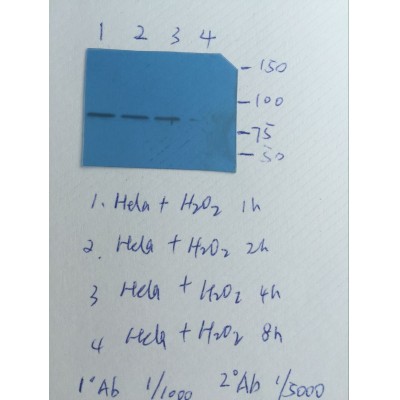 1 2 3 4
-150
-100
-75
-50
1. Hela + H2O2 1h
2. Hela + H2O2 2h
3 Hela + H2O2 4h
4 Hela + H2O2 8h
1°Ab 1/1000 2°Ab 1/5000